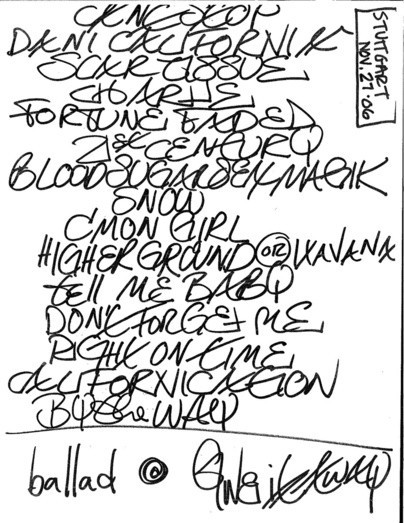 CANT STOP
STUTTGART
NOV. 27 '06
DANI CALIFORNIA
SCAR TISSUE
CHARLIE
FORTUNE FADED
21st CENTURY
BLOODSUGARSEXMAGIK
SNOW
CMON GIRL
HIGHER GROUND OR HAVANA
tell ME BABY
DON'T FORGET ME
RIGHT ON TIME
CALIFORNICATION
BY the WAY
ballad @ Give it AWAY